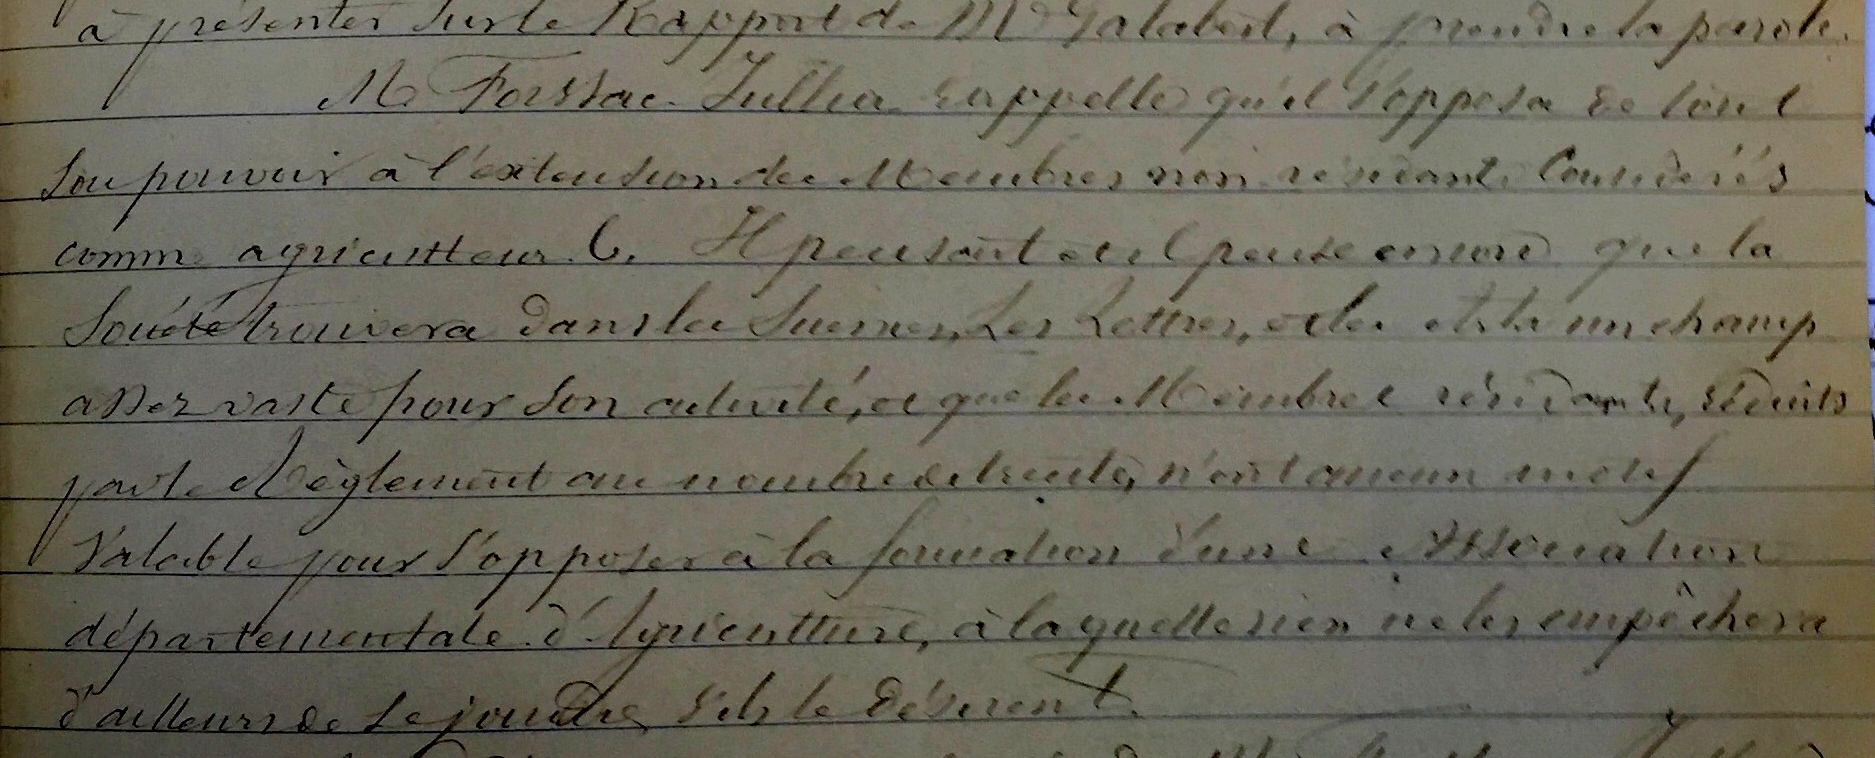 à présenter sur le Rapport de M Galabert, à prendre la parole.
M Forssac. Jullia rappelle qu'il s'opposa de tout
son pouvoir à l'extension des Membres non résidants Considérés
comme agriculteurs. Il pensait et il pense encore que la
Société trouvera dans les Sciences, Les Lettres, et les Arts un champ
assez vaste pour son activité, et que les Membres résidants, réduits
par le Règlement au nombre de trente, n'ont aucun motif
Valable pour s'opposer à la formation d'une Association
départementale d'Agriculture, à laquelle rien ne les empêchera
d'ailleurs de se joindre s'ils le désirent.